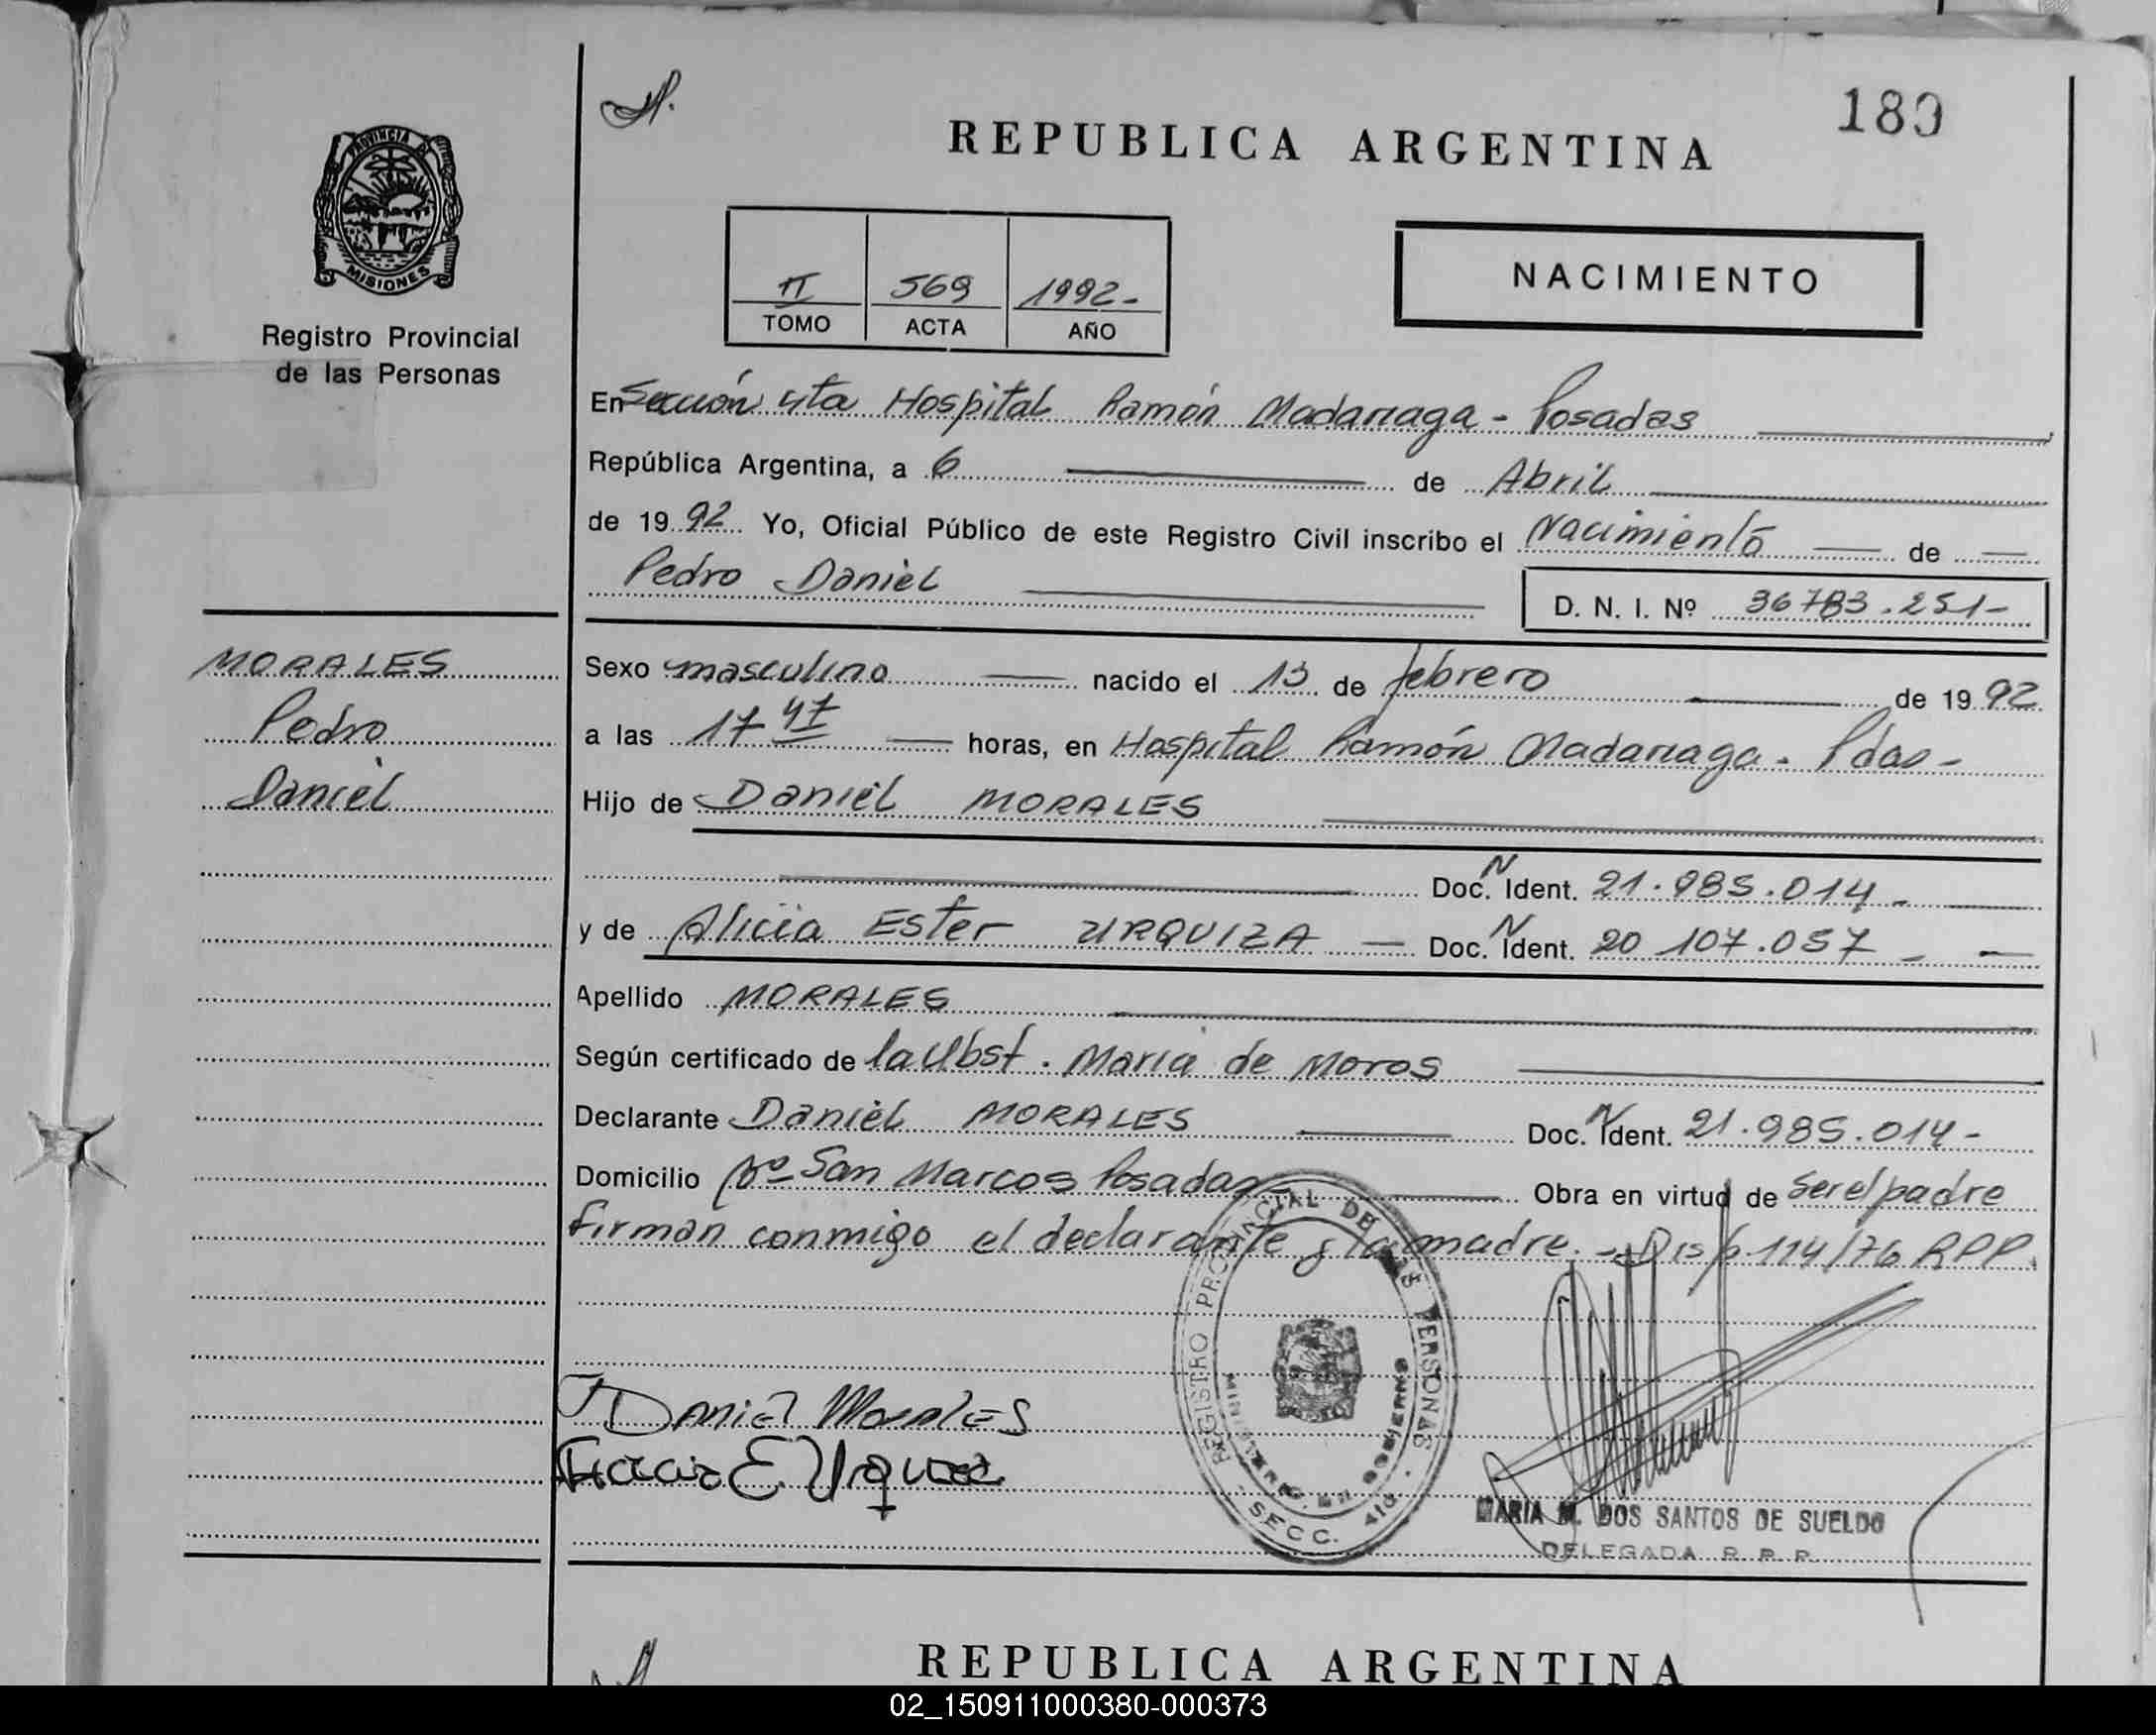 PROVINCIA DE
MISIONES
Registro Provincial
de las Personas
MORALES
Pedro
Daniel
180
REPUBLICA ARGENTINA
II 569 1992-
TOMO ACTA AÑO
NACIMIENTO
En Sección 4ta Hospital Ramón Madariaga - Posadas
República Argentina, a 6 de Abril
de 1992 Yo, Oficial Público de este Registro Civil inscribo el Nacimiento de
Pedro Daniel D. N. I. Nº 36783.251-
Sexo masculino nacido el 13 de febrero de 1992
a las 17 47 horas, en Hospital Ramón Madariaga - Pdas -
Hijo de Daniel MORALES
Doc. N Ident. 21.985.014-
y de Alicia Ester URQUIZA Doc. N Ident. 20 107.057 -
Apellido MORALES
Según certificado de la Obst. María de Moros
Declarante Daniel MORALES Doc. N Ident. 21.985.014-
Domicilio Bº San Marcos Posadas Obra en virtud de Ser el padre
firman conmigo el declarante y la madre.- Disp. 114/76 RPP.
REGISTRO PROVINCIAL DE LAS PERSONAS
MINISTERIO DE GOBIERNO
SECC. 4ta
Daniel Morales
E Urquiza
MARIA M. DOS SANTOS DE SUELDO
DELEGADA R. P. P.
REPUBLICA ARGENTINA
02_150911000380-000373